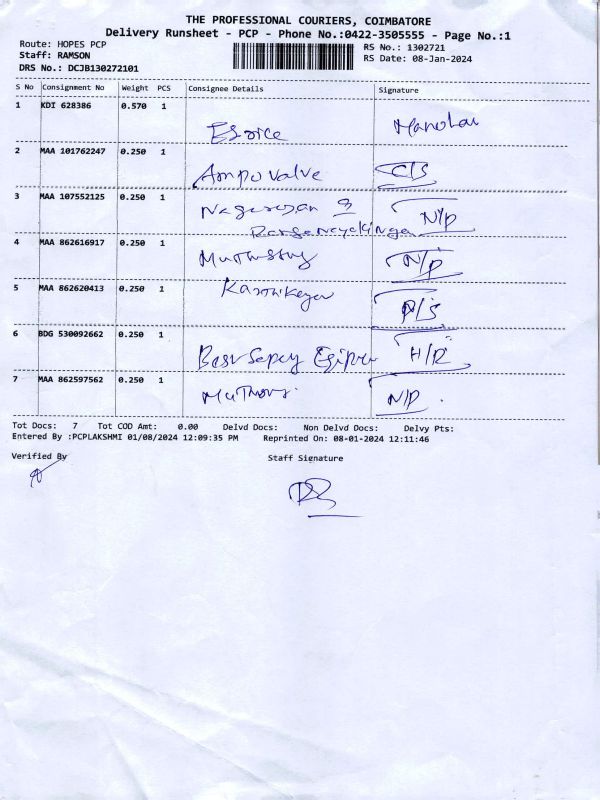 THE PROFESSIONAL COURIERS, COIMBATORE
Delivery Runsheet - PCP - Phone No.:0422-3505555 - Page No.:1
Route: HOPES PCP RS No.: 1302721
Staff: RAMSON RS Date: 08-Jan-2024
DRS No.: DCJB130272101
S No Consignment No Weight PCS Consignee Details Signature
1 KDI 628386 0.570 1
Manohar
2 MAA 101762247 0.250 1
Ampo valve C/S
3 MAA 107552125 0.250 1
N/P
4 MAA 862616917 0.250 1
N/P
5 MAA 862620413 0.250 1
Karthikeyan
6 BDG 530092662 0.250 1
H/R
7 MAA 862597562 0.250 1
N/P
Tot Docs: 7 Tot COD Amt: 0.00 Delvd Docs: Non Delvd Docs: Delvy Pts:
Entered By :PCPLAKSHMI 01/08/2024 12:09:35 PM Reprinted On: 08-01-2024 12:11:46
Verified By Staff Signature